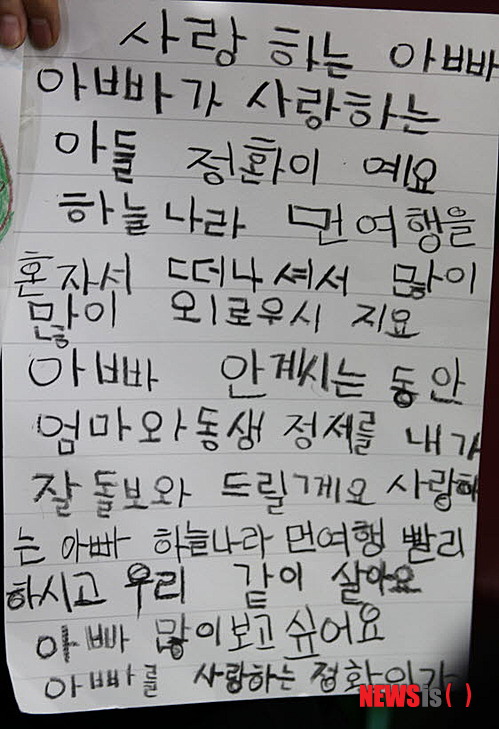 사랑 하는 아빠
아빠가 사랑하는
아들 정환이 예요
하늘나라 먼여행을
혼자서 떠나셔서 많이
많이 외로우시 지요
아빠 안계시는 동안
엄마와동생 정제를 내가
잘 돌보와 드릴게요 사랑하
는 아빠 하늘나라 먼여행 빨리
하시고 우리 같이 살아요
아빠 많이보고싶어요
아빠를 사랑하는 정환이가
NEWSis( )